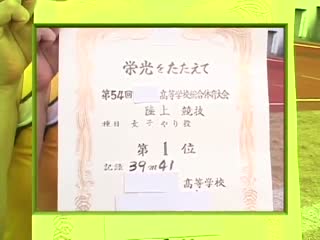 栄光をたたえて
第54回 高等学校総合体育大会
陸上 競技
種目 女子やり投
第1位
記録 39m41
高等学校